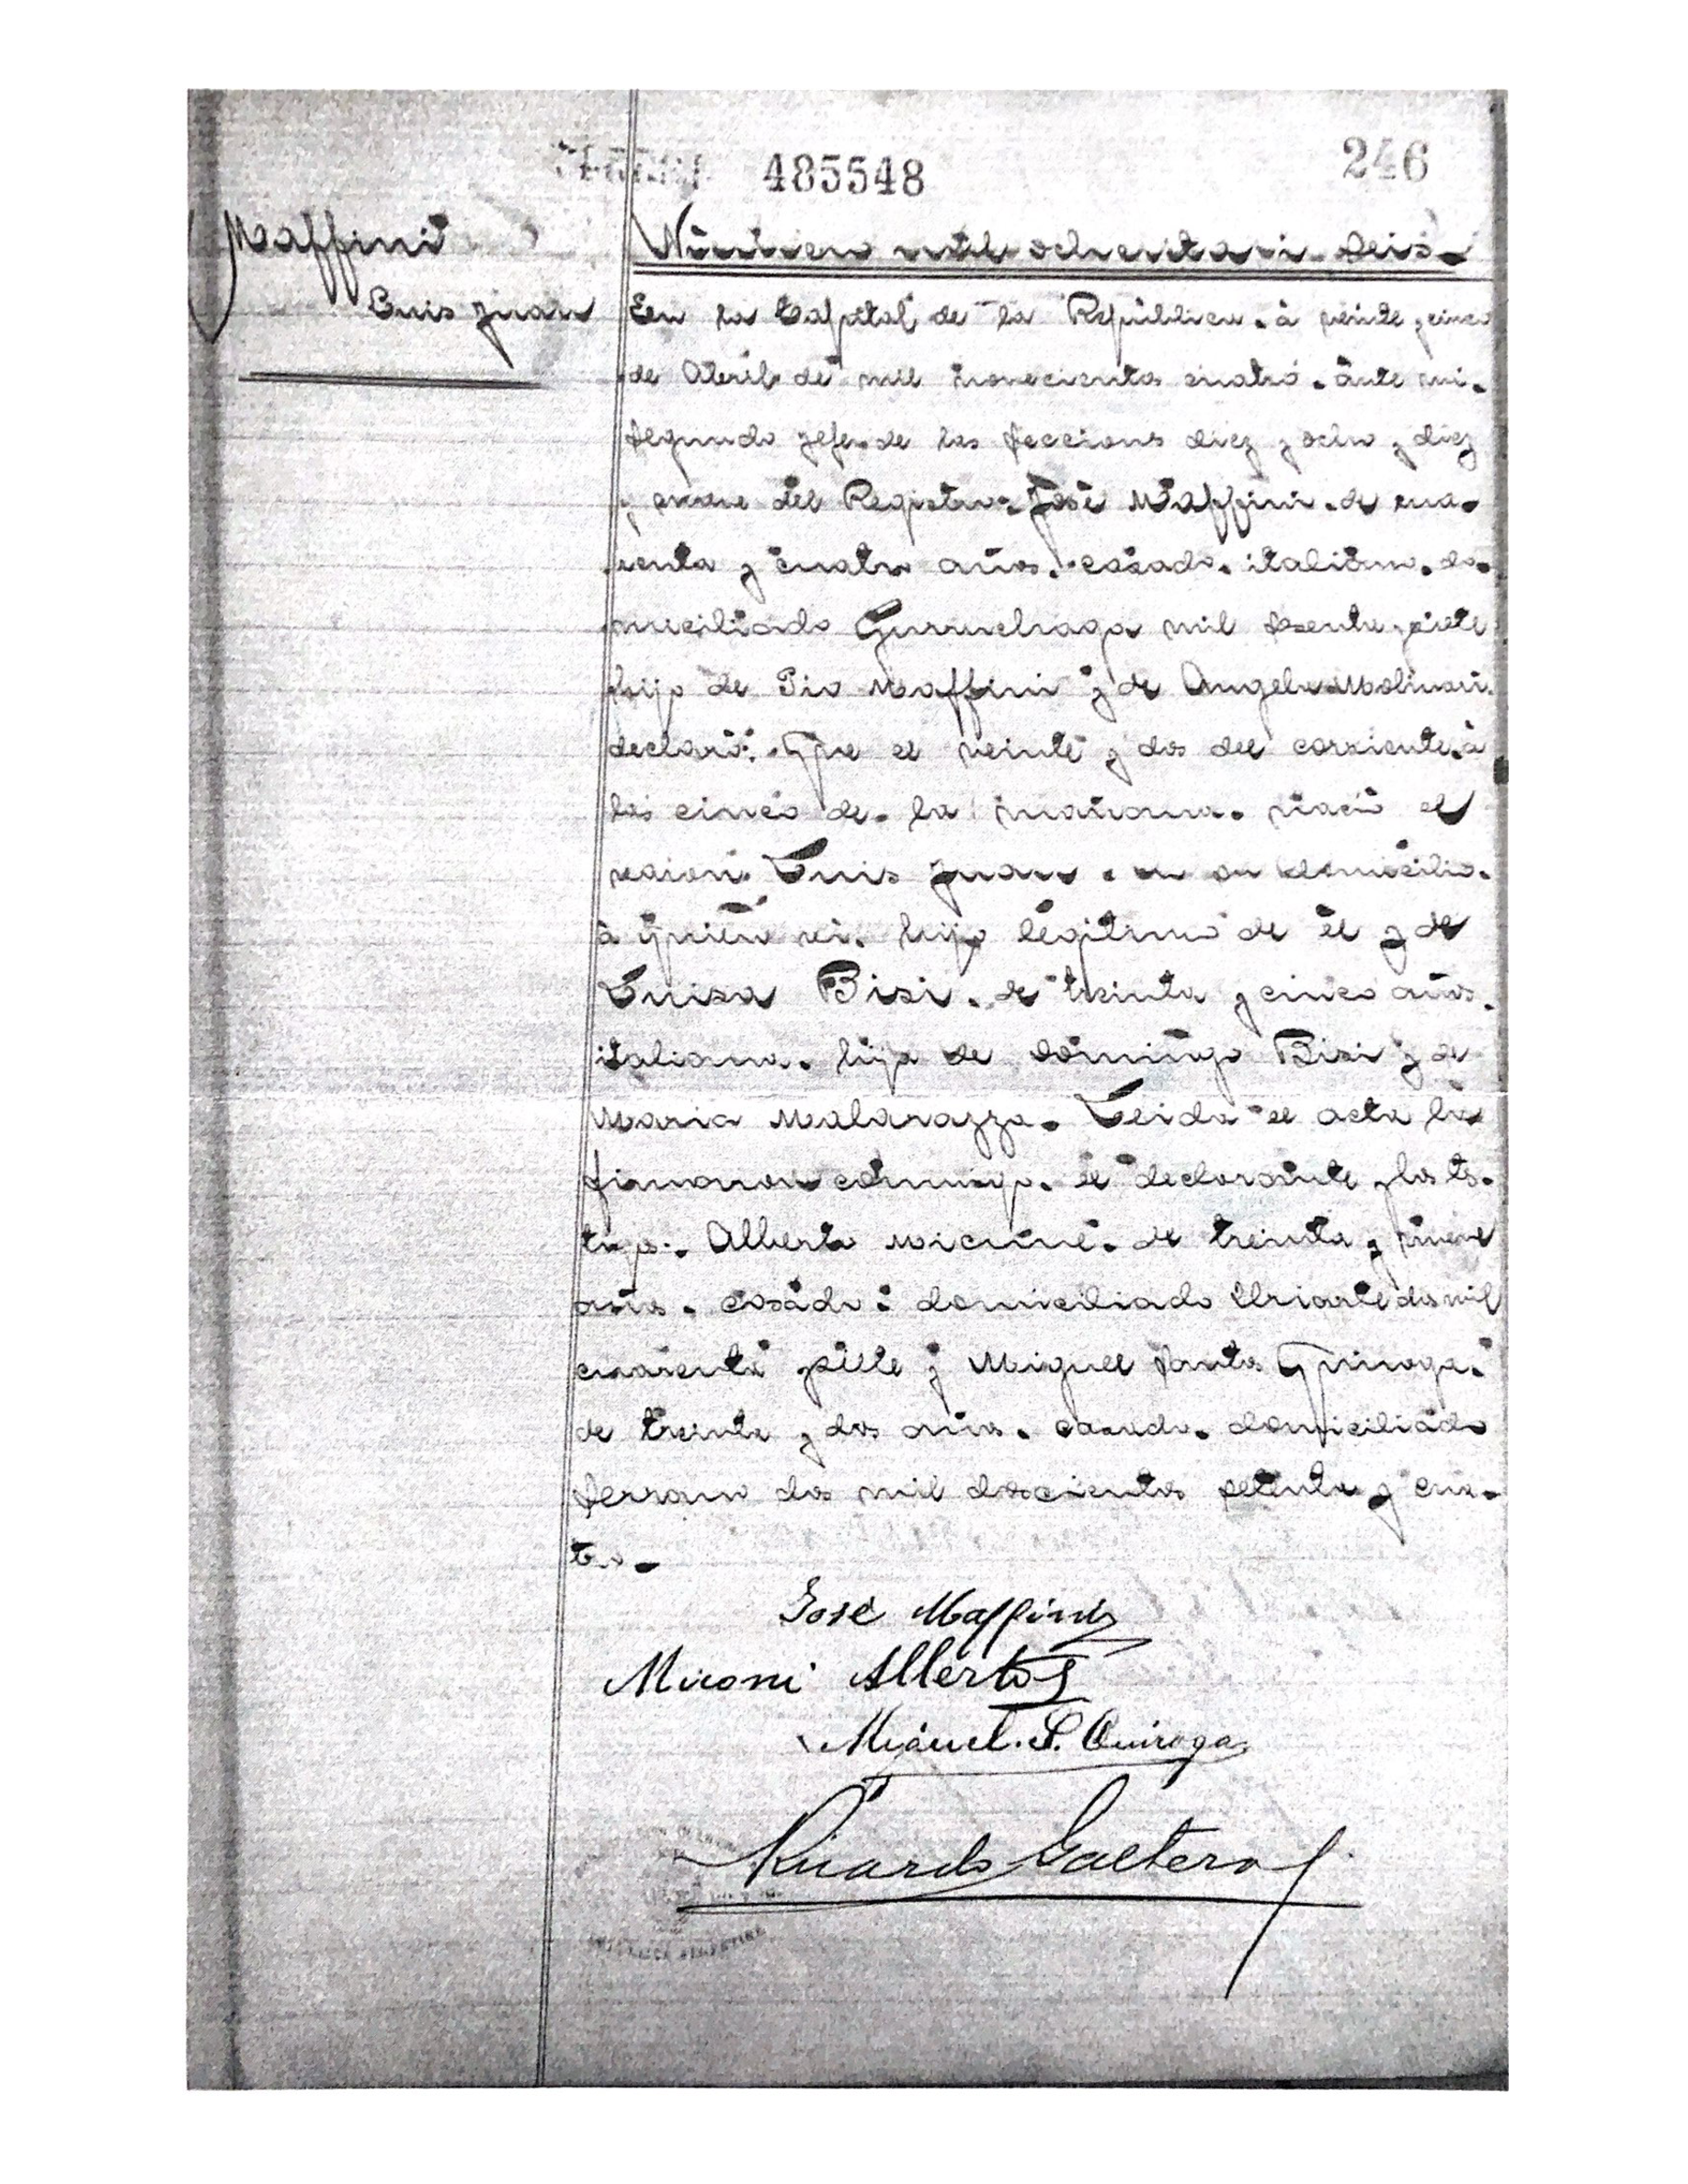 485548 246
Maffini
Luis Juan
Número mil ochenta i seis
En la Capital de la República. á veinte y cinco
de Abril de mil novecientos cuatro. ante mi.
segundo Jefe de las secciones diez y ocho y diez
y nueve del Registro. José Maffini. de cua-
renta y cuatro años. casado. italiano. do-
miciliado Gurruchaga mil sesenta y siete
hijo de Pio Maffini y de Angela Molinari.
declaró: Que el veinte y dos del corriente. á
las cinco de la mañana. nació el
varon. Luis Juan. en su domicilio.
á quien vi. hijo legítimo de él y de
Luisa Bisi. de treinta y cinco años.
italiana. hija de Domingo Bisi y de
Maria Malarazza. Leida el acta la
firmaron conmigo. el declarante y los tes-
tigos. Alberto de treinta y nueve
años. casado: domiciliado Uriarte dos mil
cuarenta y siete y Miguel Santos Quiroga.
de treinta y dos años. casado. domiciliado
Serrano dos mil doscientos setenta y cua-
tro.
José Maffini
Alberto
Miguel. S. Quiroga
Ricardo